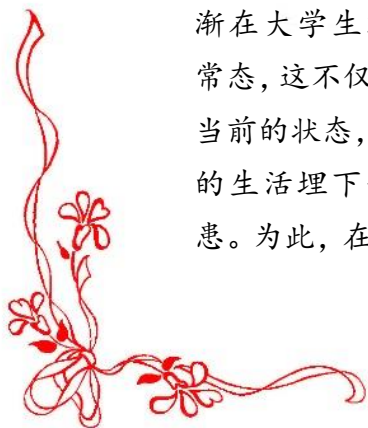 渐在大学生
常态，这不仅
当前的状态，
的生活埋下
患。为此，在